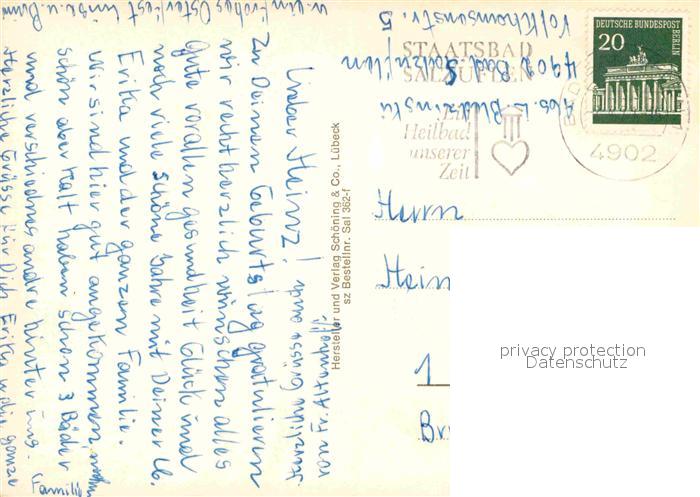 Lieber Heinz!
Zu Deinem Geburtstag gratulieren
wir recht herzlich wünschen alles
Gute vorallen gesundheit Glück und
noch viele schöne Jahre mit Deiner lb.
Erika und der ganzen Familie.
Wir sind hier gut angekommen,
schön aber kalt haben schon 3 Bäder
und verschiednes andre hinter uns.
Herzliche Grüsse für Dich Erika u. die ganze
Familie
u. ein frohes Osterfest
herzliche Grüsse auch
von Fr.
Hersteller und Verlag Schöning & Co., Lübeck
sz Bestellnr. Sal 362-f
Abs.
4902 Bad Salzuflen
5
STAATSBAD
SALZUFLEN
Ein
Heilbad
unserer
Zeit
4902
DEUTSCHE BUNDESPOST
BERLIN
20
Herrn
Hein
1
privacy protection
Datenschutz